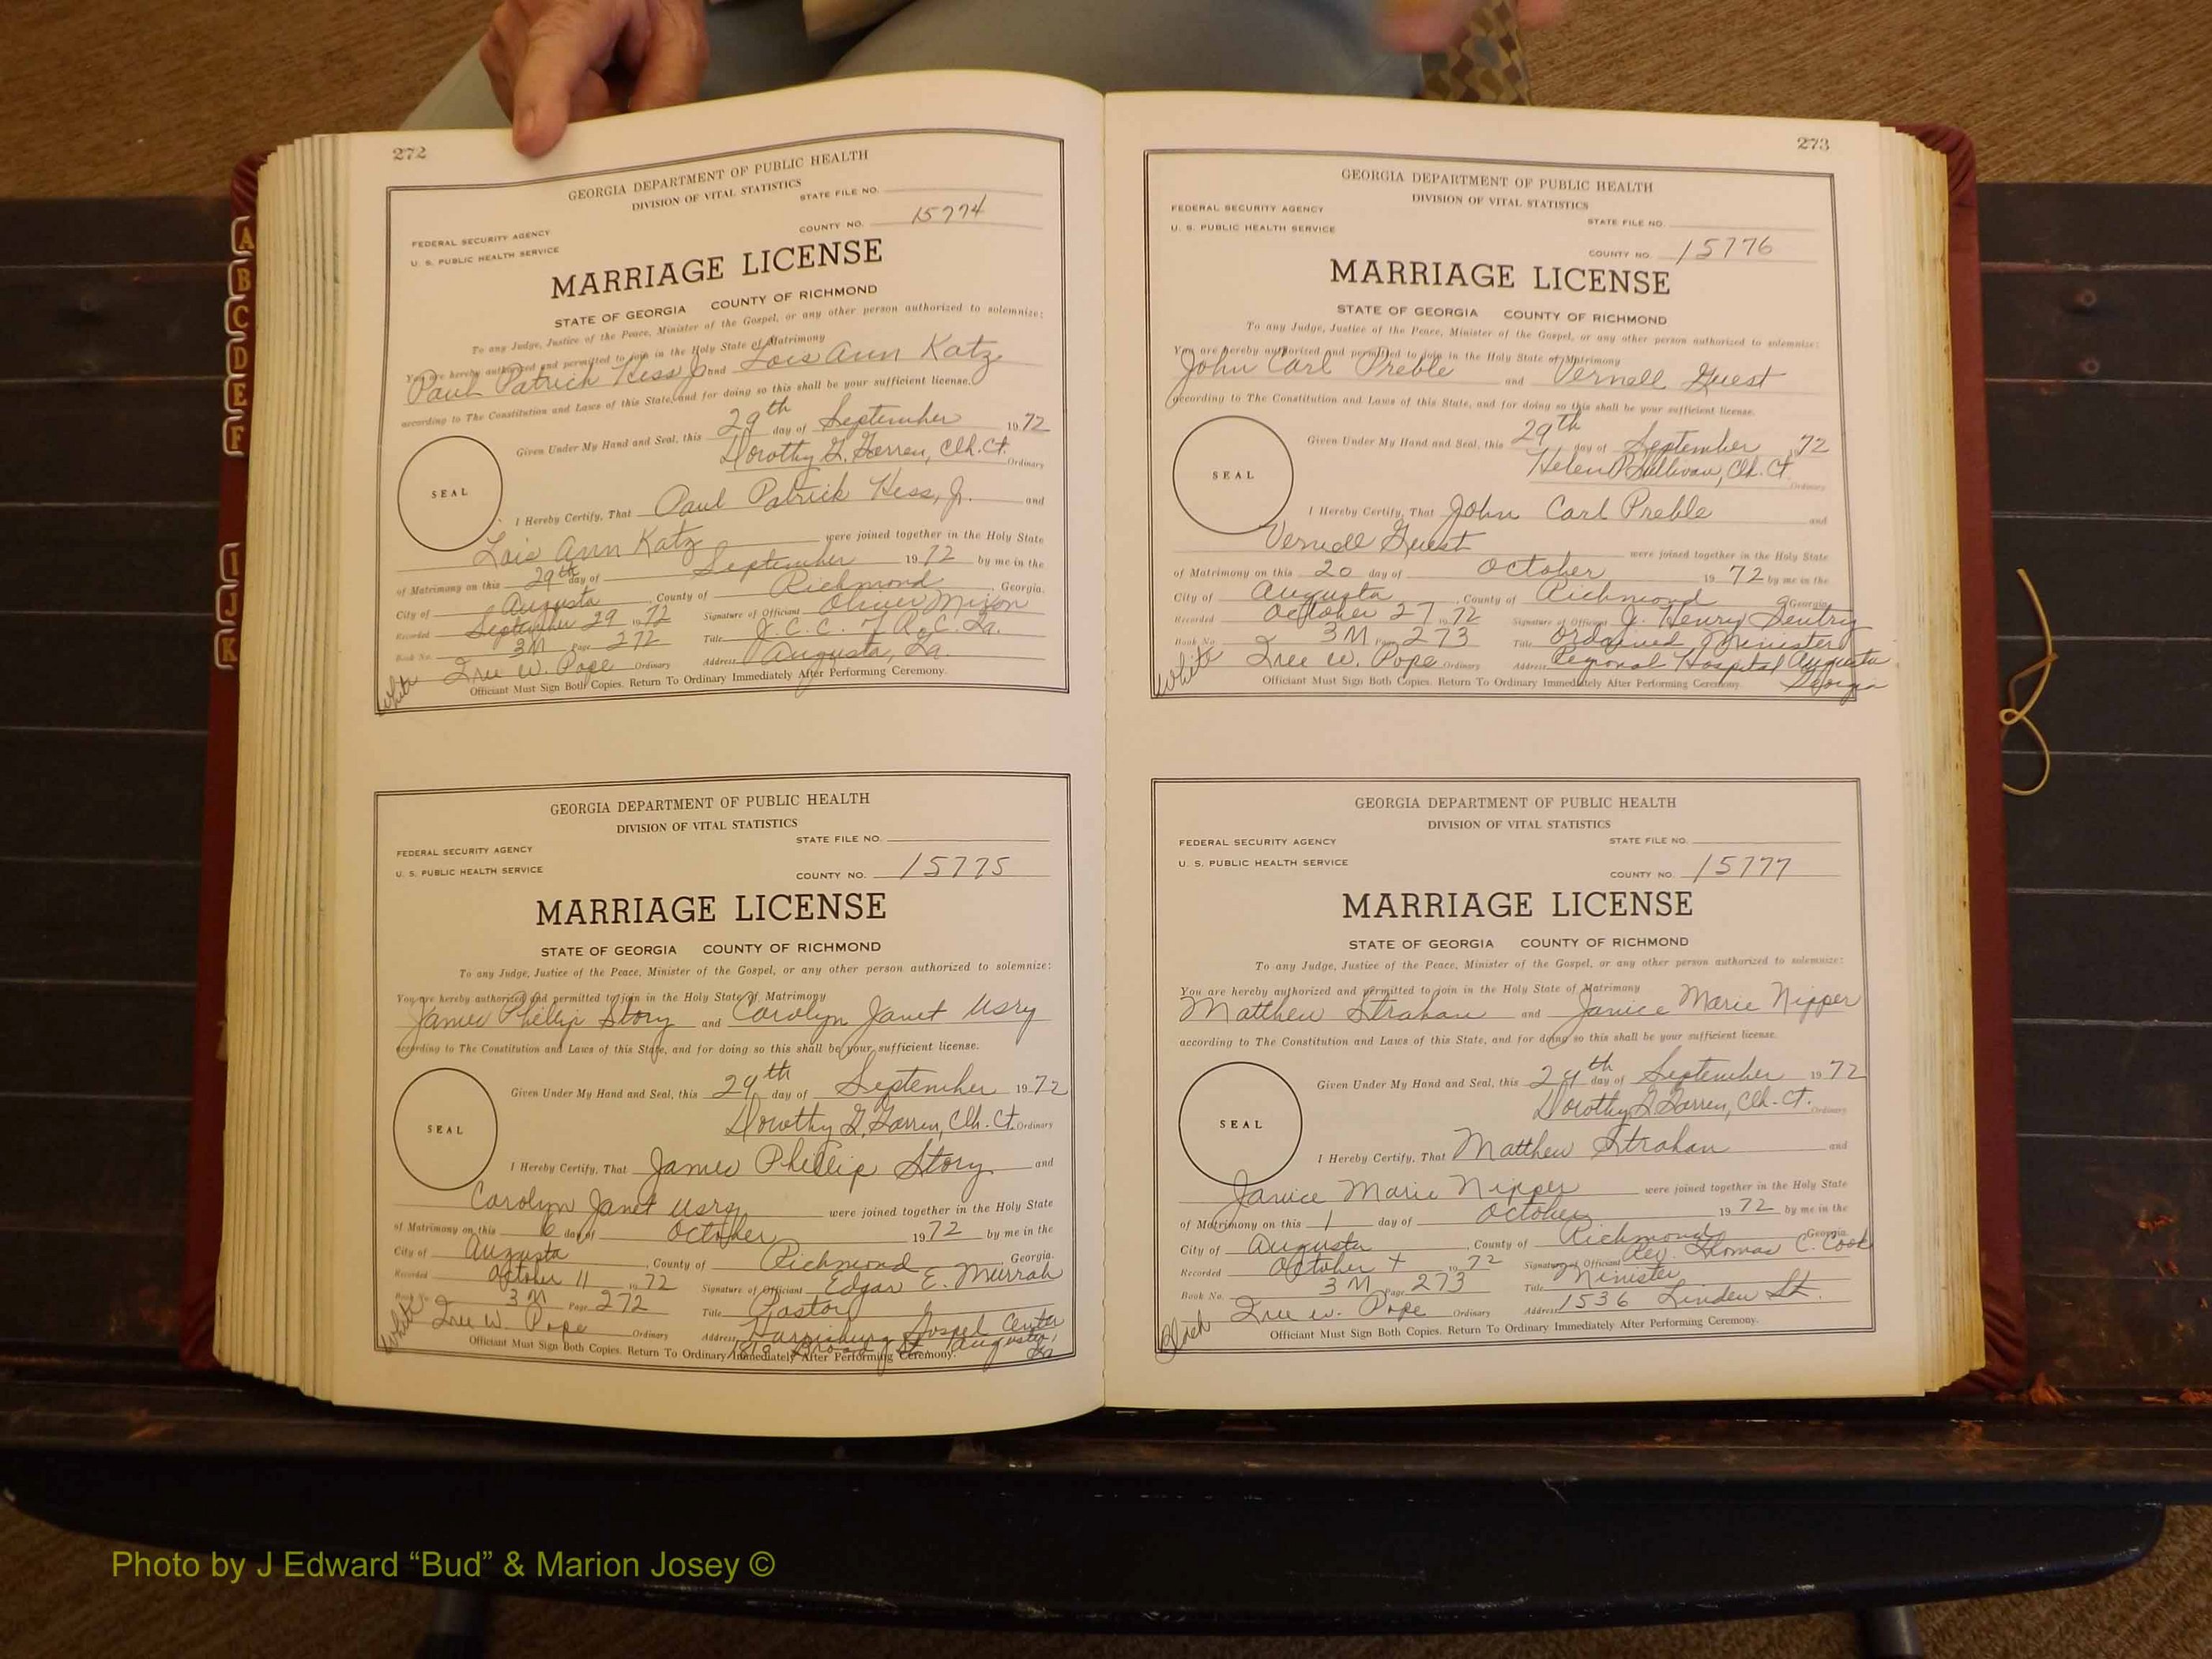 A
B
C
D
E
F
I
J
K
272
GEORGIA DEPARTMENT OF PUBLIC HEALTH
DIVISION OF VITAL STATISTICS
STATE FILE NO.
FEDERAL SECURITY AGENCY
U. S. PUBLIC HEALTH SERVICE
COUNTY NO. 15774
MARRIAGE LICENSE
STATE OF GEORGIA COUNTY OF RICHMOND
To any Judge, Justice of the Peace, Minister of the Gospel, or any other person authorized to solemnize:
You are hereby authorized and permitted to join in the Holy State of Matrimony
Paul Patrick Hess Jr and Lois Ann Katz
according to The Constitution and Laws of this State, and for doing so this shall be your sufficient license.
Given Under My Hand and Seal, this 29th day of September 1972
Dorothy G. Garren, Clk. Ct. Ordinary
SEAL
I Hereby Certify, That Paul Patrick Hess, Jr. and
Lois Ann Katz were joined together in the Holy State
of Matrimony on this 29th day of September 1972 by me in the
City of Augusta, County of Richmond Georgia.
Recorded September 29 1972 Signature of Officiant Oliver Mixon
Book No. 3M Page 272 Title J.C.C. of R.C. Ga.
Tree W. Pope Ordinary Address Augusta, Ga.
White
Officiant Must Sign Both Copies. Return To Ordinary Immediately After Performing Ceremony.
GEORGIA DEPARTMENT OF PUBLIC HEALTH
DIVISION OF VITAL STATISTICS
STATE FILE NO.
FEDERAL SECURITY AGENCY
U. S. PUBLIC HEALTH SERVICE
COUNTY NO. 15775
MARRIAGE LICENSE
STATE OF GEORGIA COUNTY OF RICHMOND
To any Judge, Justice of the Peace, Minister of the Gospel, or any other person authorized to solemnize:
You are hereby authorized and permitted to join in the Holy State of Matrimony
James Phillip Story and Carolyn Janet Usry
according to The Constitution and Laws of this State, and for doing so this shall be your sufficient license.
Given Under My Hand and Seal, this 29th day of September 1972
Dorothy G. Garren, Clk. Ct. Ordinary
SEAL
I Hereby Certify, That James Phillip Story and
Carolyn Janet Usry were joined together in the Holy State
of Matrimony on this 6 day of October 1972 by me in the
City of Augusta, County of Richmond Georgia.
Recorded October 11 1972 Signature of Officiant Edgar E. Murrah
Book No. 3M Page 272 Title Pastor
Tree W. Pope Ordinary Address Harrisburg Gospel Center
1818 Broad St. Augusta, Ga
White
Officiant Must Sign Both Copies. Return To Ordinary Immediately After Performing Ceremony.
273
GEORGIA DEPARTMENT OF PUBLIC HEALTH
DIVISION OF VITAL STATISTICS
FEDERAL SECURITY AGENCY
STATE FILE NO.
U. S. PUBLIC HEALTH SERVICE
COUNTY NO. 15776
MARRIAGE LICENSE
STATE OF GEORGIA COUNTY OF RICHMOND
To any Judge, Justice of the Peace, Minister of the Gospel, or any other person authorized to solemnize:
You are hereby authorized and permitted to join in the Holy State of Matrimony
John Carl Preble and Vernell Guest
according to The Constitution and Laws of this State, and for doing so this shall be your sufficient license.
Given Under My Hand and Seal, this 29th day of September, 72
Helen P Sullivan, Clk. Ct. Ordinary
SEAL
I Hereby Certify, That John Carl Preble and
Vernell Guest were joined together in the Holy State
of Matrimony on this 20 day of October 1972 by me in the
City of Augusta, County of Richmond Georgia.
Recorded October 27 1972 Signature of Officiant J. Henry Gentry
Book No. 3M Page 273 Title Ordained Minister
Tree W. Pope Ordinary Address Regional Hospital Augusta
Georgia
White
Officiant Must Sign Both Copies. Return To Ordinary Immediately After Performing Ceremony.
GEORGIA DEPARTMENT OF PUBLIC HEALTH
DIVISION OF VITAL STATISTICS
FEDERAL SECURITY AGENCY
STATE FILE NO.
U. S. PUBLIC HEALTH SERVICE
COUNTY NO. 15777
MARRIAGE LICENSE
STATE OF GEORGIA COUNTY OF RICHMOND
To any Judge, Justice of the Peace, Minister of the Gospel, or any other person authorized to solemnize:
You are hereby authorized and permitted to join in the Holy State of Matrimony
Matthew Strahan and Janice Marie Nipper
according to The Constitution and Laws of this State, and for doing so this shall be your sufficient license.
Given Under My Hand and Seal, this 29th day of September 1972
Dorothy G Garren, Clk. Ct. Ordinary
SEAL
I Hereby Certify, That Matthew Strahan and
Janice Marie Nipper were joined together in the Holy State
of Matrimony on this 1 day of October 1972 by me in the
City of Augusta, County of Richmond Georgia.
Recorded October 1972 Signature of Officiant Rev. Thomas C. Cook
Book No. 3M Page 273 Title Minister
Tree W. Pope Ordinary Address 1536 Linden St.
Black
Officiant Must Sign Both Copies. Return To Ordinary Immediately After Performing Ceremony.
Photo by J Edward “Bud” & Marion Josey ©